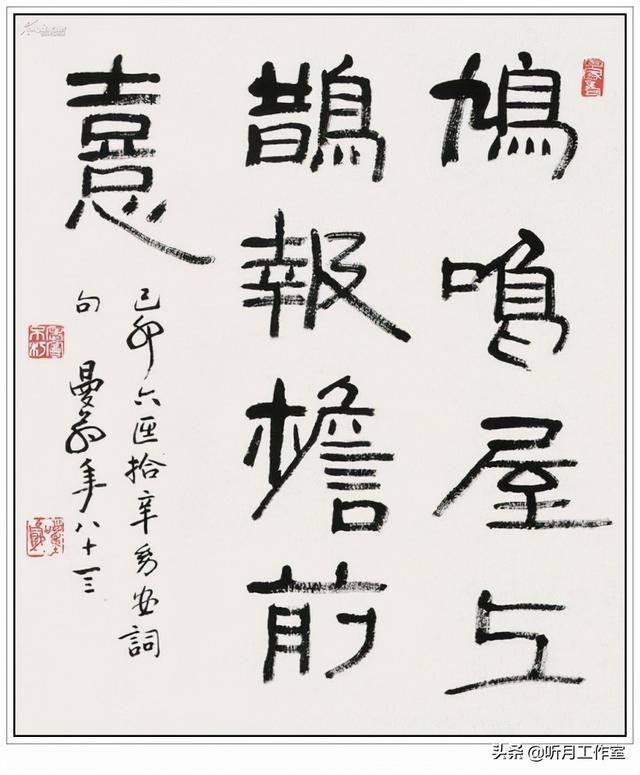 鳩鳴屋上
鵲報檐前
憙
己卯六拾辛幼安詞
句
曼翁年八十三
头条 @听月工作室